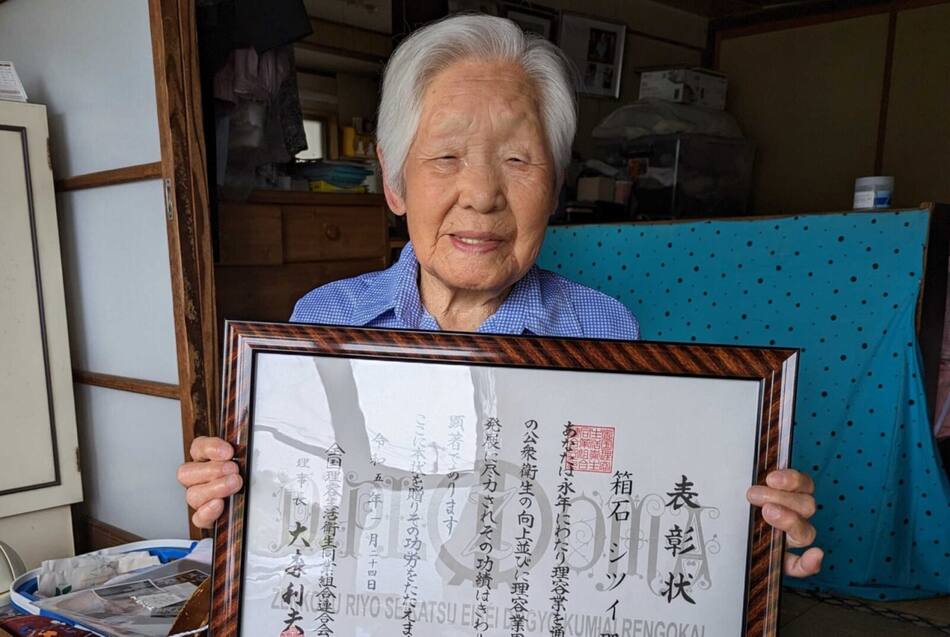 表彰状
箱石 シツイ
あなたは永年にわたり理容業を通
の公衆衛生の向上並びに理容業界
発展に尽力されその功績はきわめ
顕著であります
ここに本状を贈りその功労をたたえま
令和五年一月二十四日
全国理容生活衛生同業組合連合会
理事長 大森利夫
DIPLOMA
ZENKOKU RIYO SEIKATSU EISEI DOGYOKUMIAI RENGOKAI